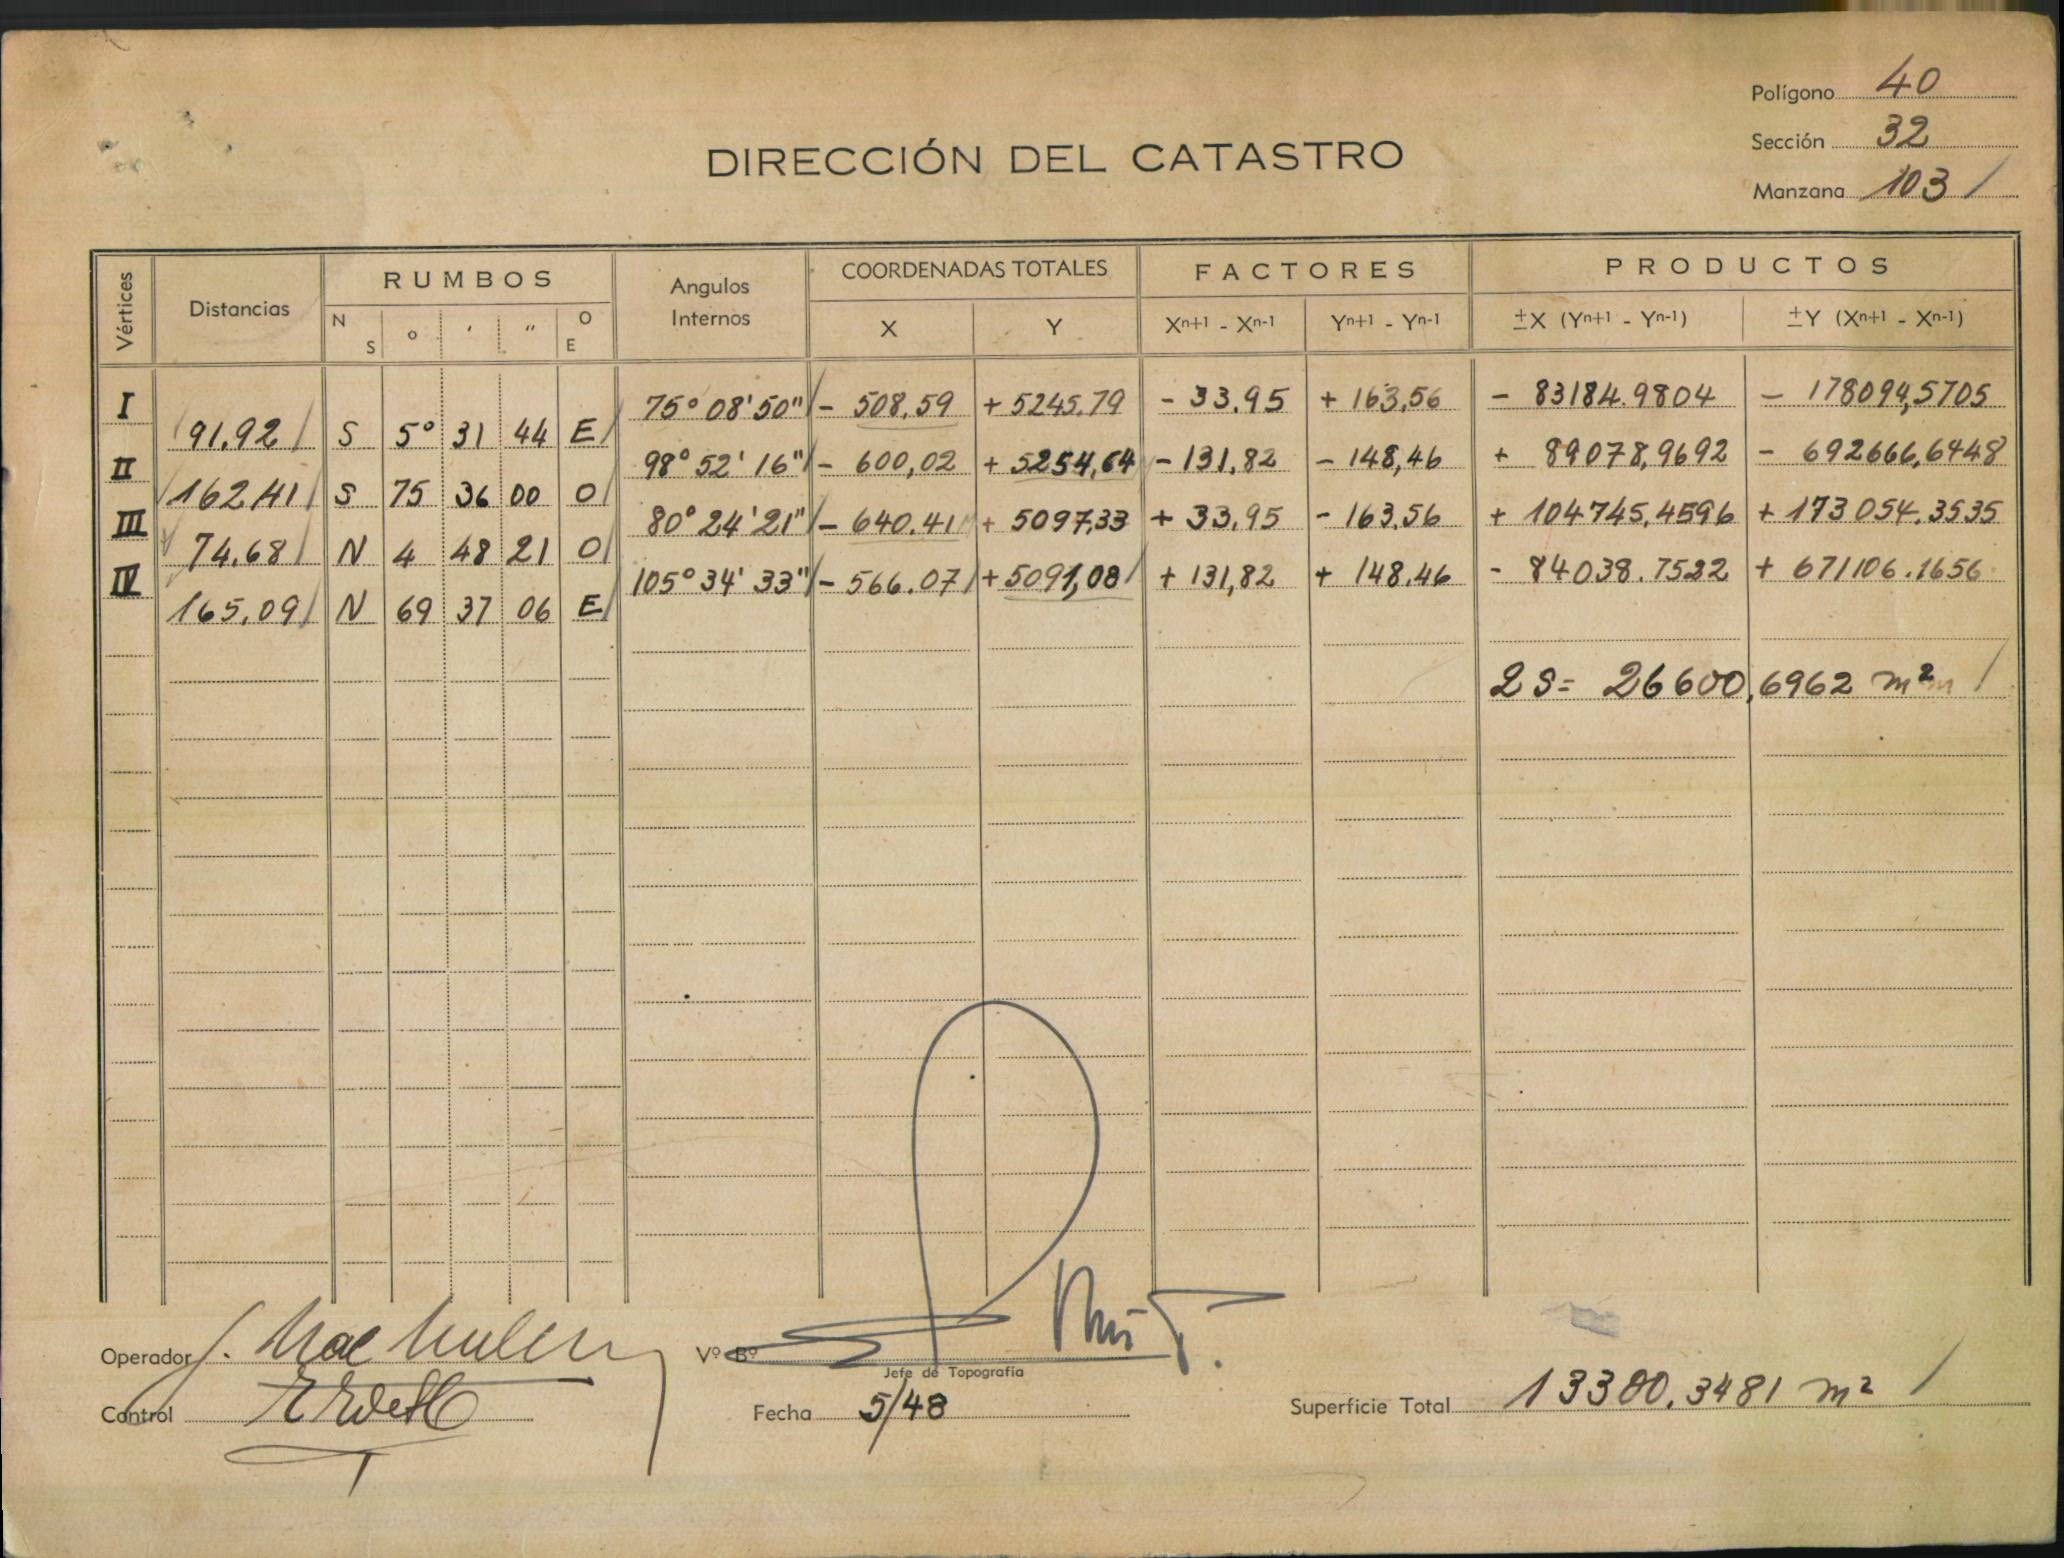 Polígono 40
Sección 32
Manzana 103
DIRECCIÓN DEL CATASTRO
Vértices Distancias RUMBOS Angulos Internos COORDENADAS TOTALES FACTORES PRODUCTOS
N S o ' " O E X Y Xn+1 - Xn-1 Yn+1 - Yn-1 ±X (Yn+1 - Yn-1) ±Y (Xn+1 - Xn-1)
I 75° 08' 50" - 508.59 + 5245.79 - 33.95 + 163,56 - 83184.9804 - 178094,5705
91.92 S 5° 31 44 E
II 98° 52' 16" - 600,02 + 5254,64 - 131,82 - 148,46 + 89078,9692 - 692666,6448
162,41 S 75 36 00 O
III 80° 24' 21" - 640.41 + 5097,33 + 33,95 - 163,56 + 104745,4596 + 173054.3535
74.68 N 4 48 21 O
IV 105° 34' 33" - 566.07 + 5091,08 + 131,82 + 148.46 - 84038.7522 + 671106.1656
165.09 N 69 37 06 E
2 S = 26600,6962 m²
Operador
Vº Bº
Jefe de Topografía
Control
Fecha 5/48
Superficie Total 13300.3481 m²